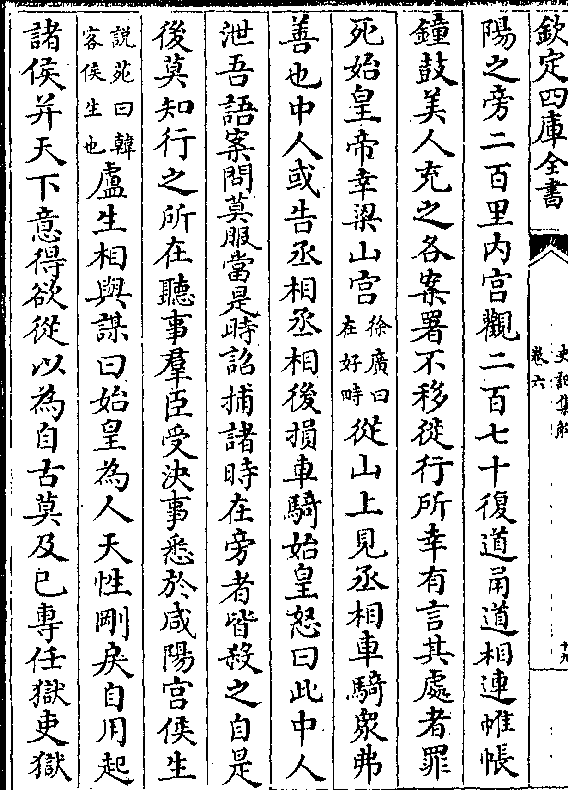 欽定四庫全書
史記集解
卷六
陽之旁二百里内宫觀二百七十復道甬道相連帷帳
鐘鼓美人充之各案署不移徙行所幸有言其處者罪
死始皇帝幸梁山宫徐廣曰在好畤從山上見丞相車騎衆弗
善也中人或告丞相丞相後損車騎始皇怒曰此中人
泄吾語案問莫服當是時詔捕諸時在旁者皆殺之自是
後莫知行之所在聽事羣臣受決事悉於咸陽宫侯生
説苑曰韓客侯生也盧生相與謀曰始皇為人天性剛戾自用起
諸侯并天下意得欲從以為自古莫及己專任獄吏獄